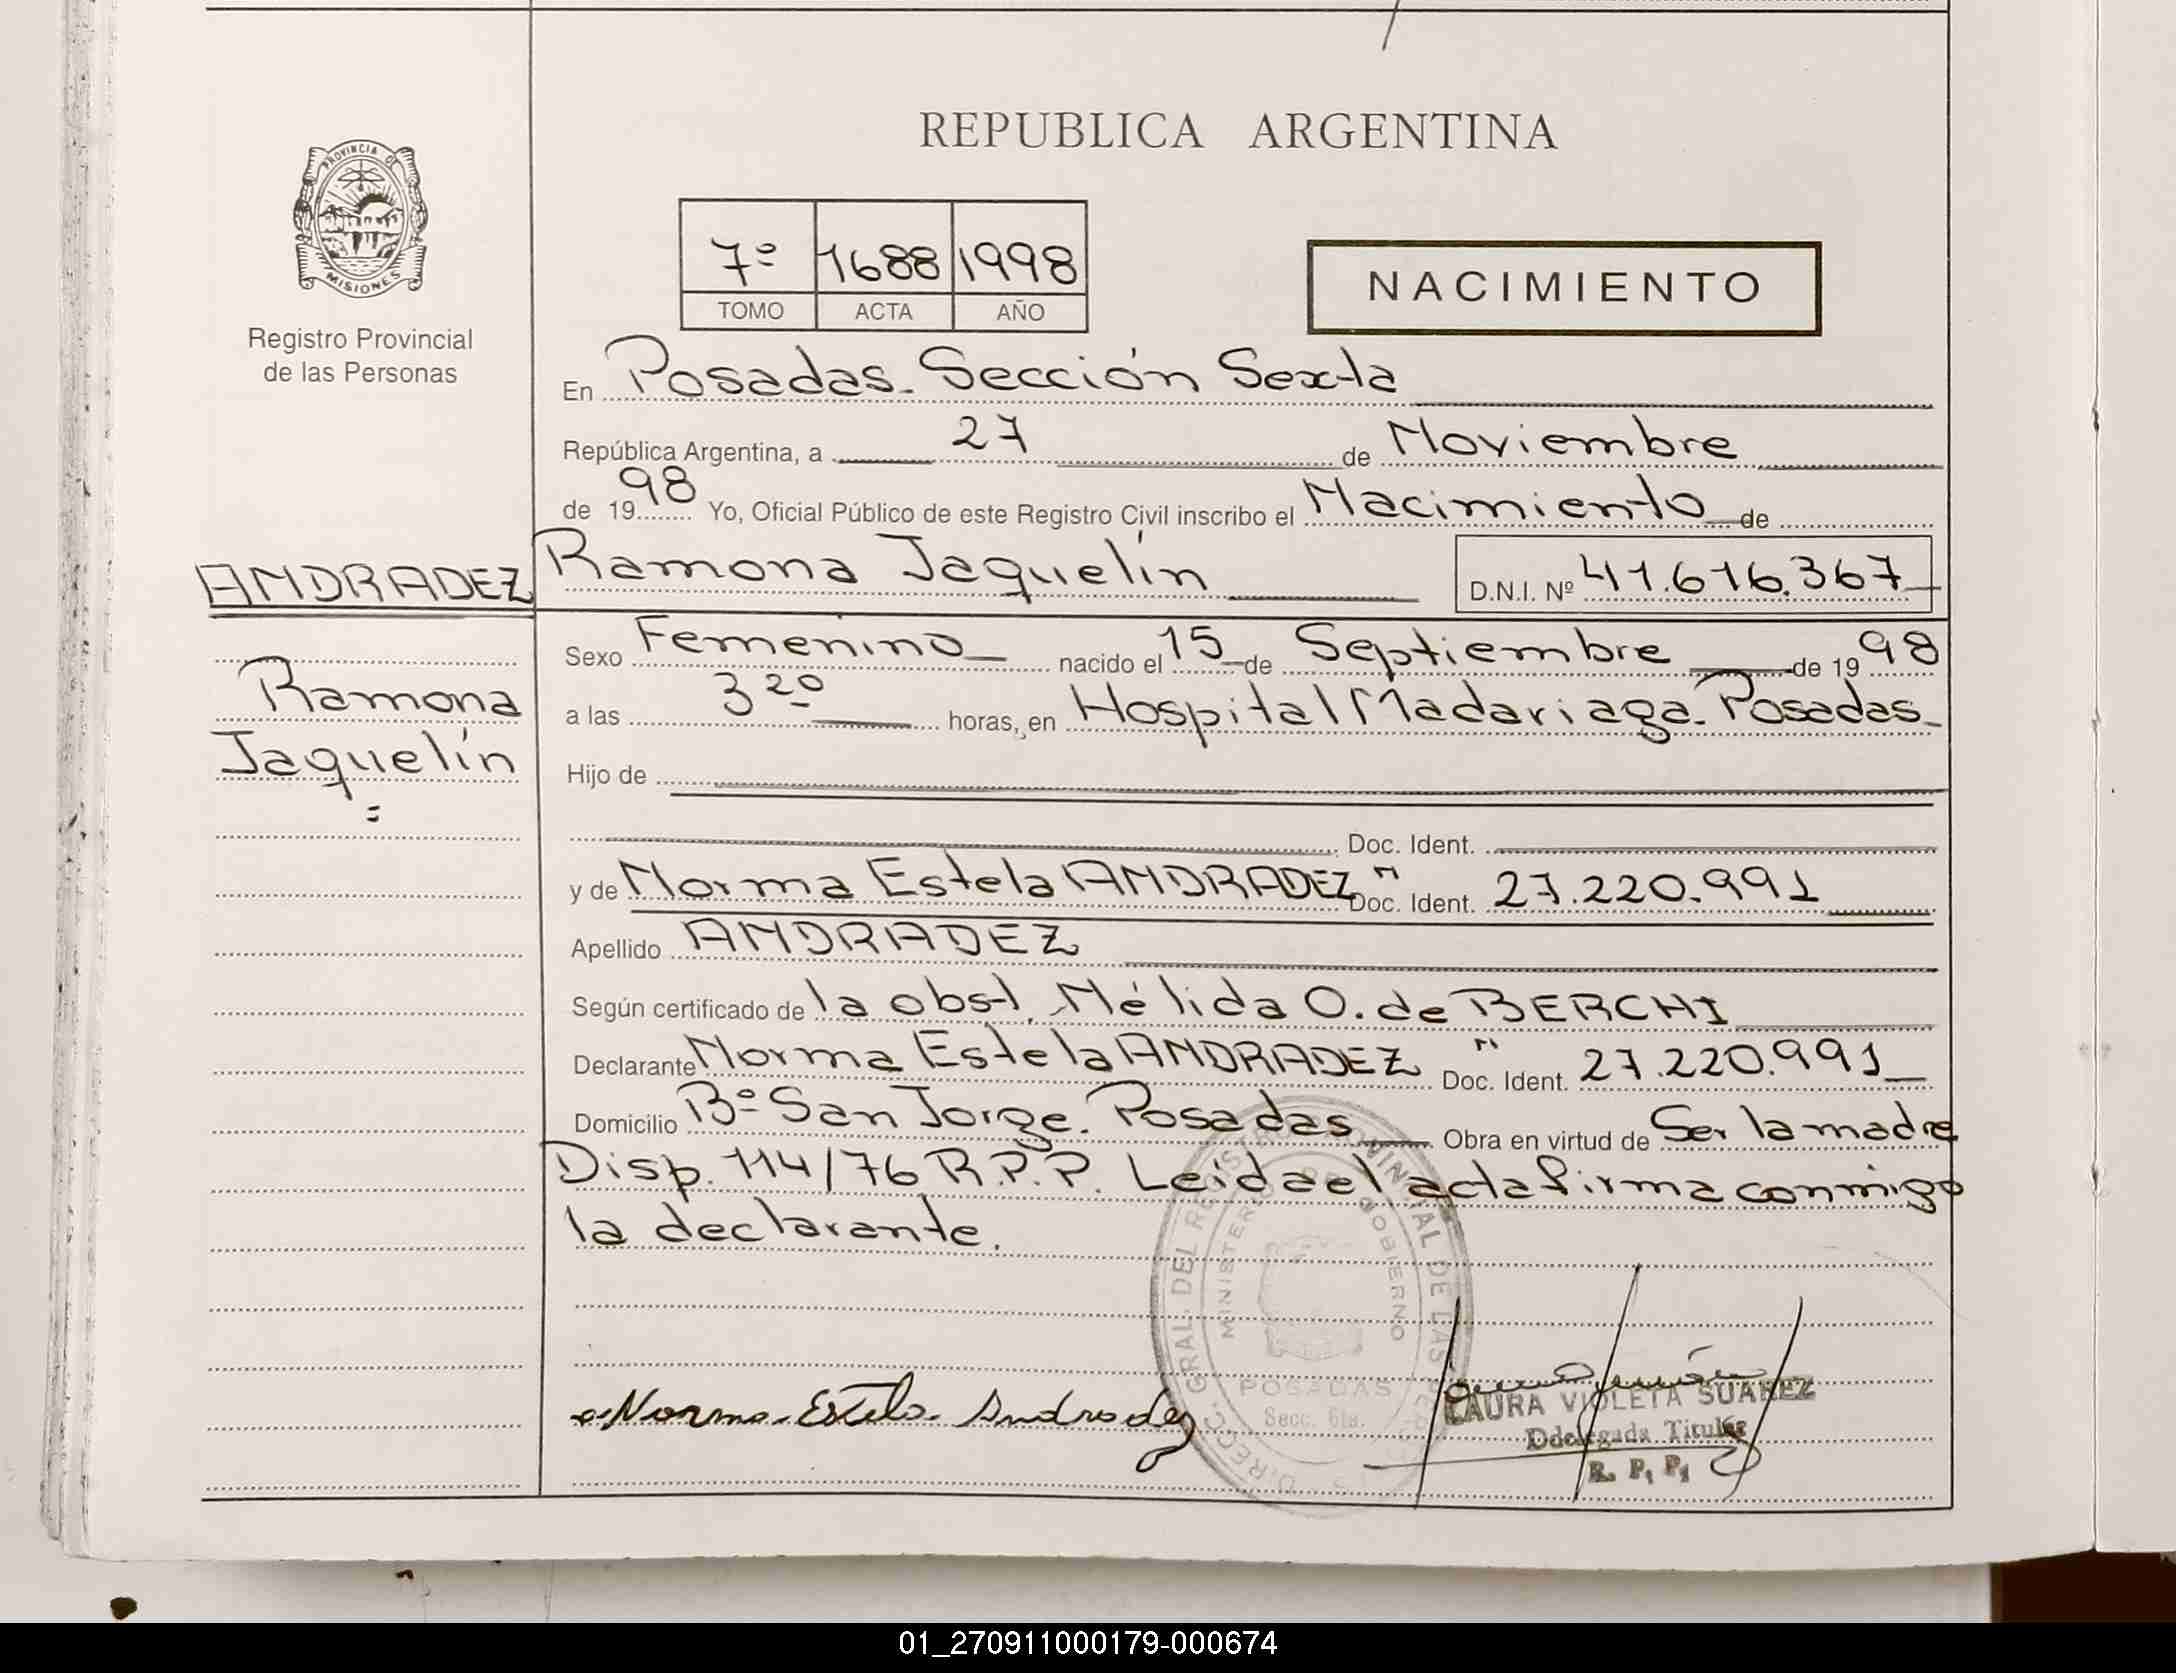 REPUBLICA ARGENTINA
PROVINCIA DE
MISIONES
Registro Provincial
de las Personas
7º 1688 1998
TOMO ACTA AÑO
NACIMIENTO
En Posadas. Sección Sexta
República Argentina, a 27 de Noviembre
de 1998 Yo, Oficial Público de este Registro Civil inscribo el Nacimiento de
ANDRADEZ
Ramona Jaquelín D.N.I. Nº 41.616.367
Ramona
Jaquelín
Sexo Femenino nacido el 15 de Septiembre de 1998
a las 3 20 horas, en Hospital Madariaga. Posadas
Hijo de
Doc. Ident.
y de Norma Estela ANDRADEZ Doc. Ident. " 27.220.991
Apellido ANDRADEZ
Según certificado de la obst. Nélida O. de BERCHI
Declarante Norma Estela ANDRADEZ Doc. Ident. " 27.220.991
Domicilio Bº San Jorge. Posadas Obra en virtud de Ser la madre
Disp. 114/76 R.P.P. Leida el acta firma conmigo
la declarante.
DIRECC. GRAL. DEL REGISTRO PROVINCIAL DE LAS
MINISTERIO DE GOBIERNO
POSADAS
Secc. 6ta.
Norma Estela Andradez
LAURA VIOLETA SUAREZ
Ddelegada Titular
R. P. P.
01_270911000179-000674